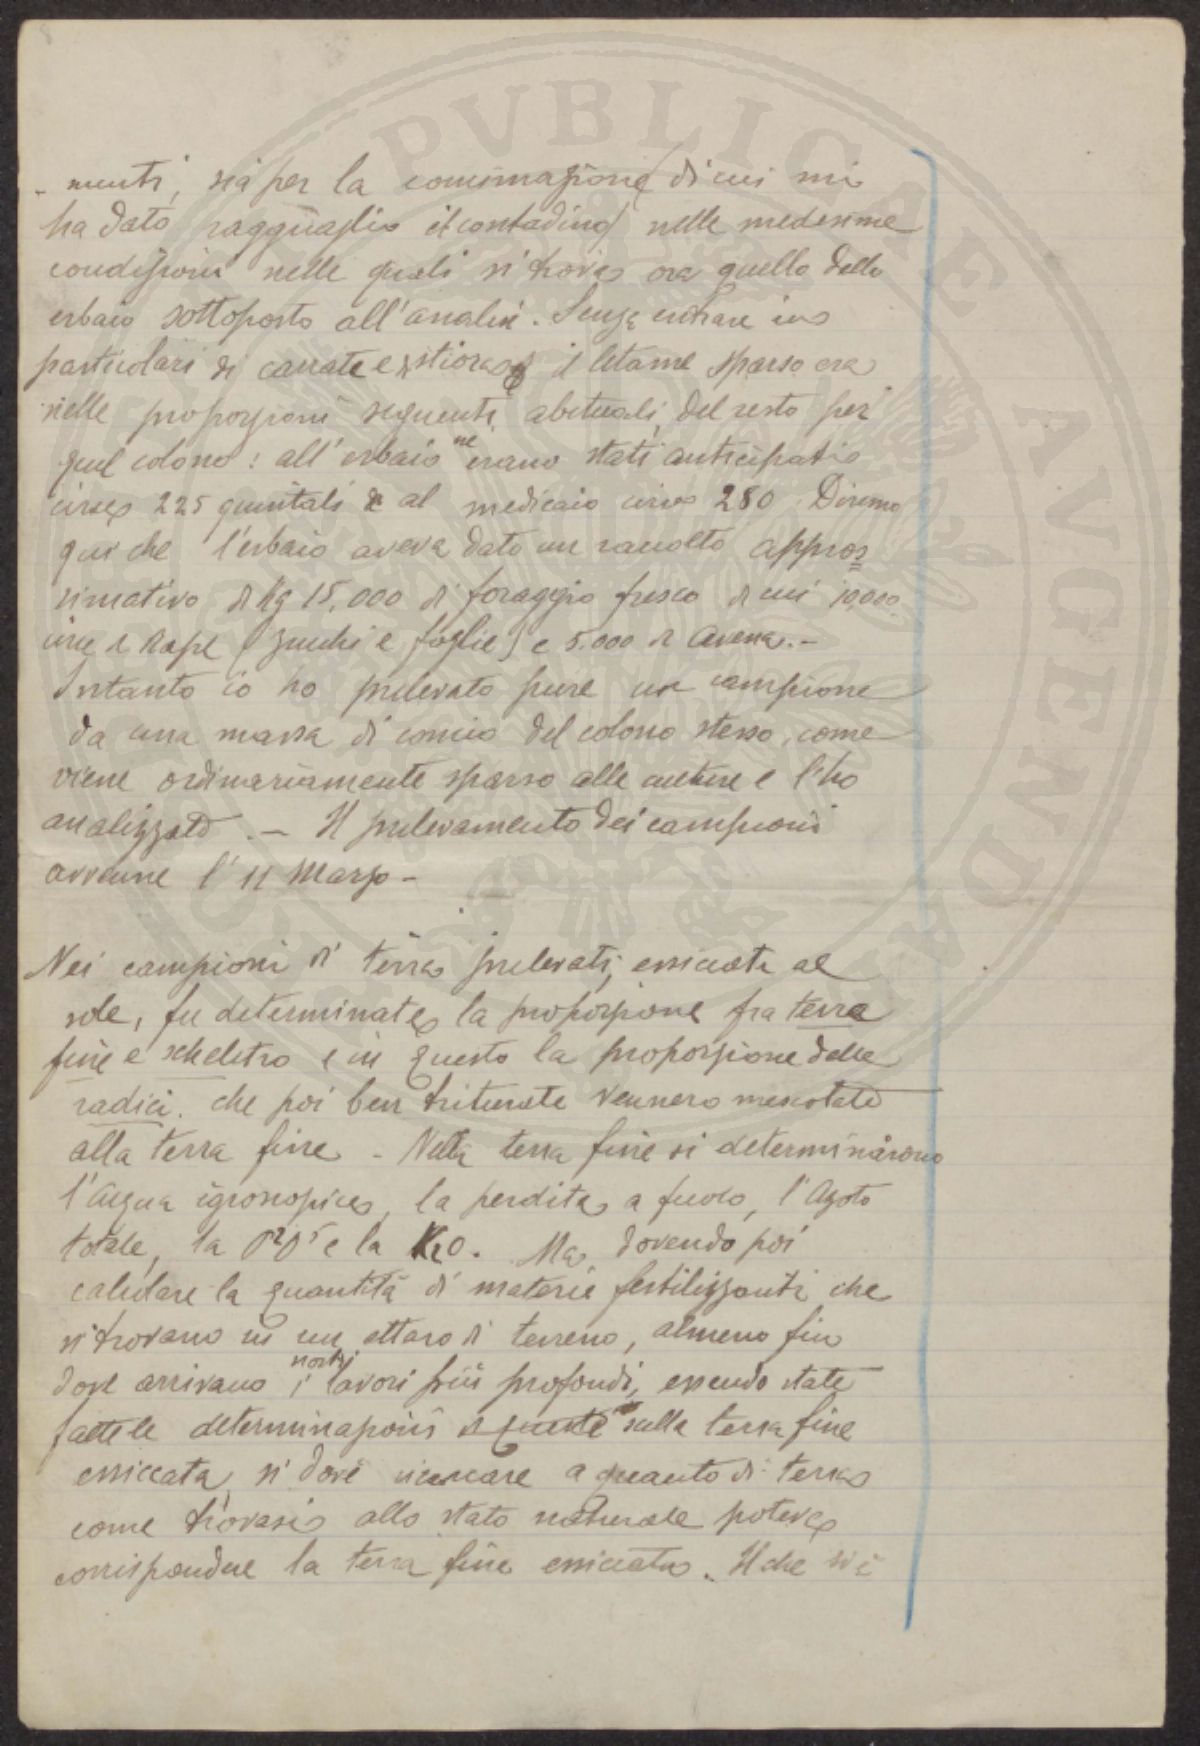 - menti, sia per la concimazione (di cui mi
ha dato ragguaglio il contadino) nelle medesime
condizioni nelle quali si trova ora quello dello
erbaio sottoposto all'analisi. Senza entrare in
particolari di carrate e di stiora il letame sparso era
nelle proporzioni seguenti, abituali, del resto per
quel colono: all'erbaio ne erano stati anticipati
circa 225 quintali al medicaio circa 280. Diremo
qui che l'erbaio aveva dato un raccolto appros
simativo di Kg 15,000 di foraggio fresco di cui 10,000
circa di Rape (zucchi e foglie) e 5.000 di Avena. -
Intanto io ho prelevato pure un campione
da una massa di concio del colono stesso, come
viene ordinariamente sparso alle culture e l'ho
analizzato. - Il prelevamento dei campioni
avvenne l'11 Marzo -
Nei campioni di terra prelevati, essiccata al
sole, fu determinata la proporzione fra terra
fine e scheletro e in questo la proporzione delle
radici. che poi ben triturate vennero mescolate
alla terra fine - Nella terra fine si determinarono
l'Acqua igroscopica, la perdita a fuoco, l'Azoto
totale, la P2O5 e la K2O. Ma, dovendo poi
calcolare la quantità di materie fertilizzanti che
si trovano in un ettaro di terreno, almeno fin
dove arrivano i nostri lavori più profondi, essendo state
fatte le determinazioni di queste sulla terra fine
essiccata, si dové ricercare a quanto di terra
come trovasi allo stato naturale poteva
corrispondere la terra fine essiccata. Il che si è